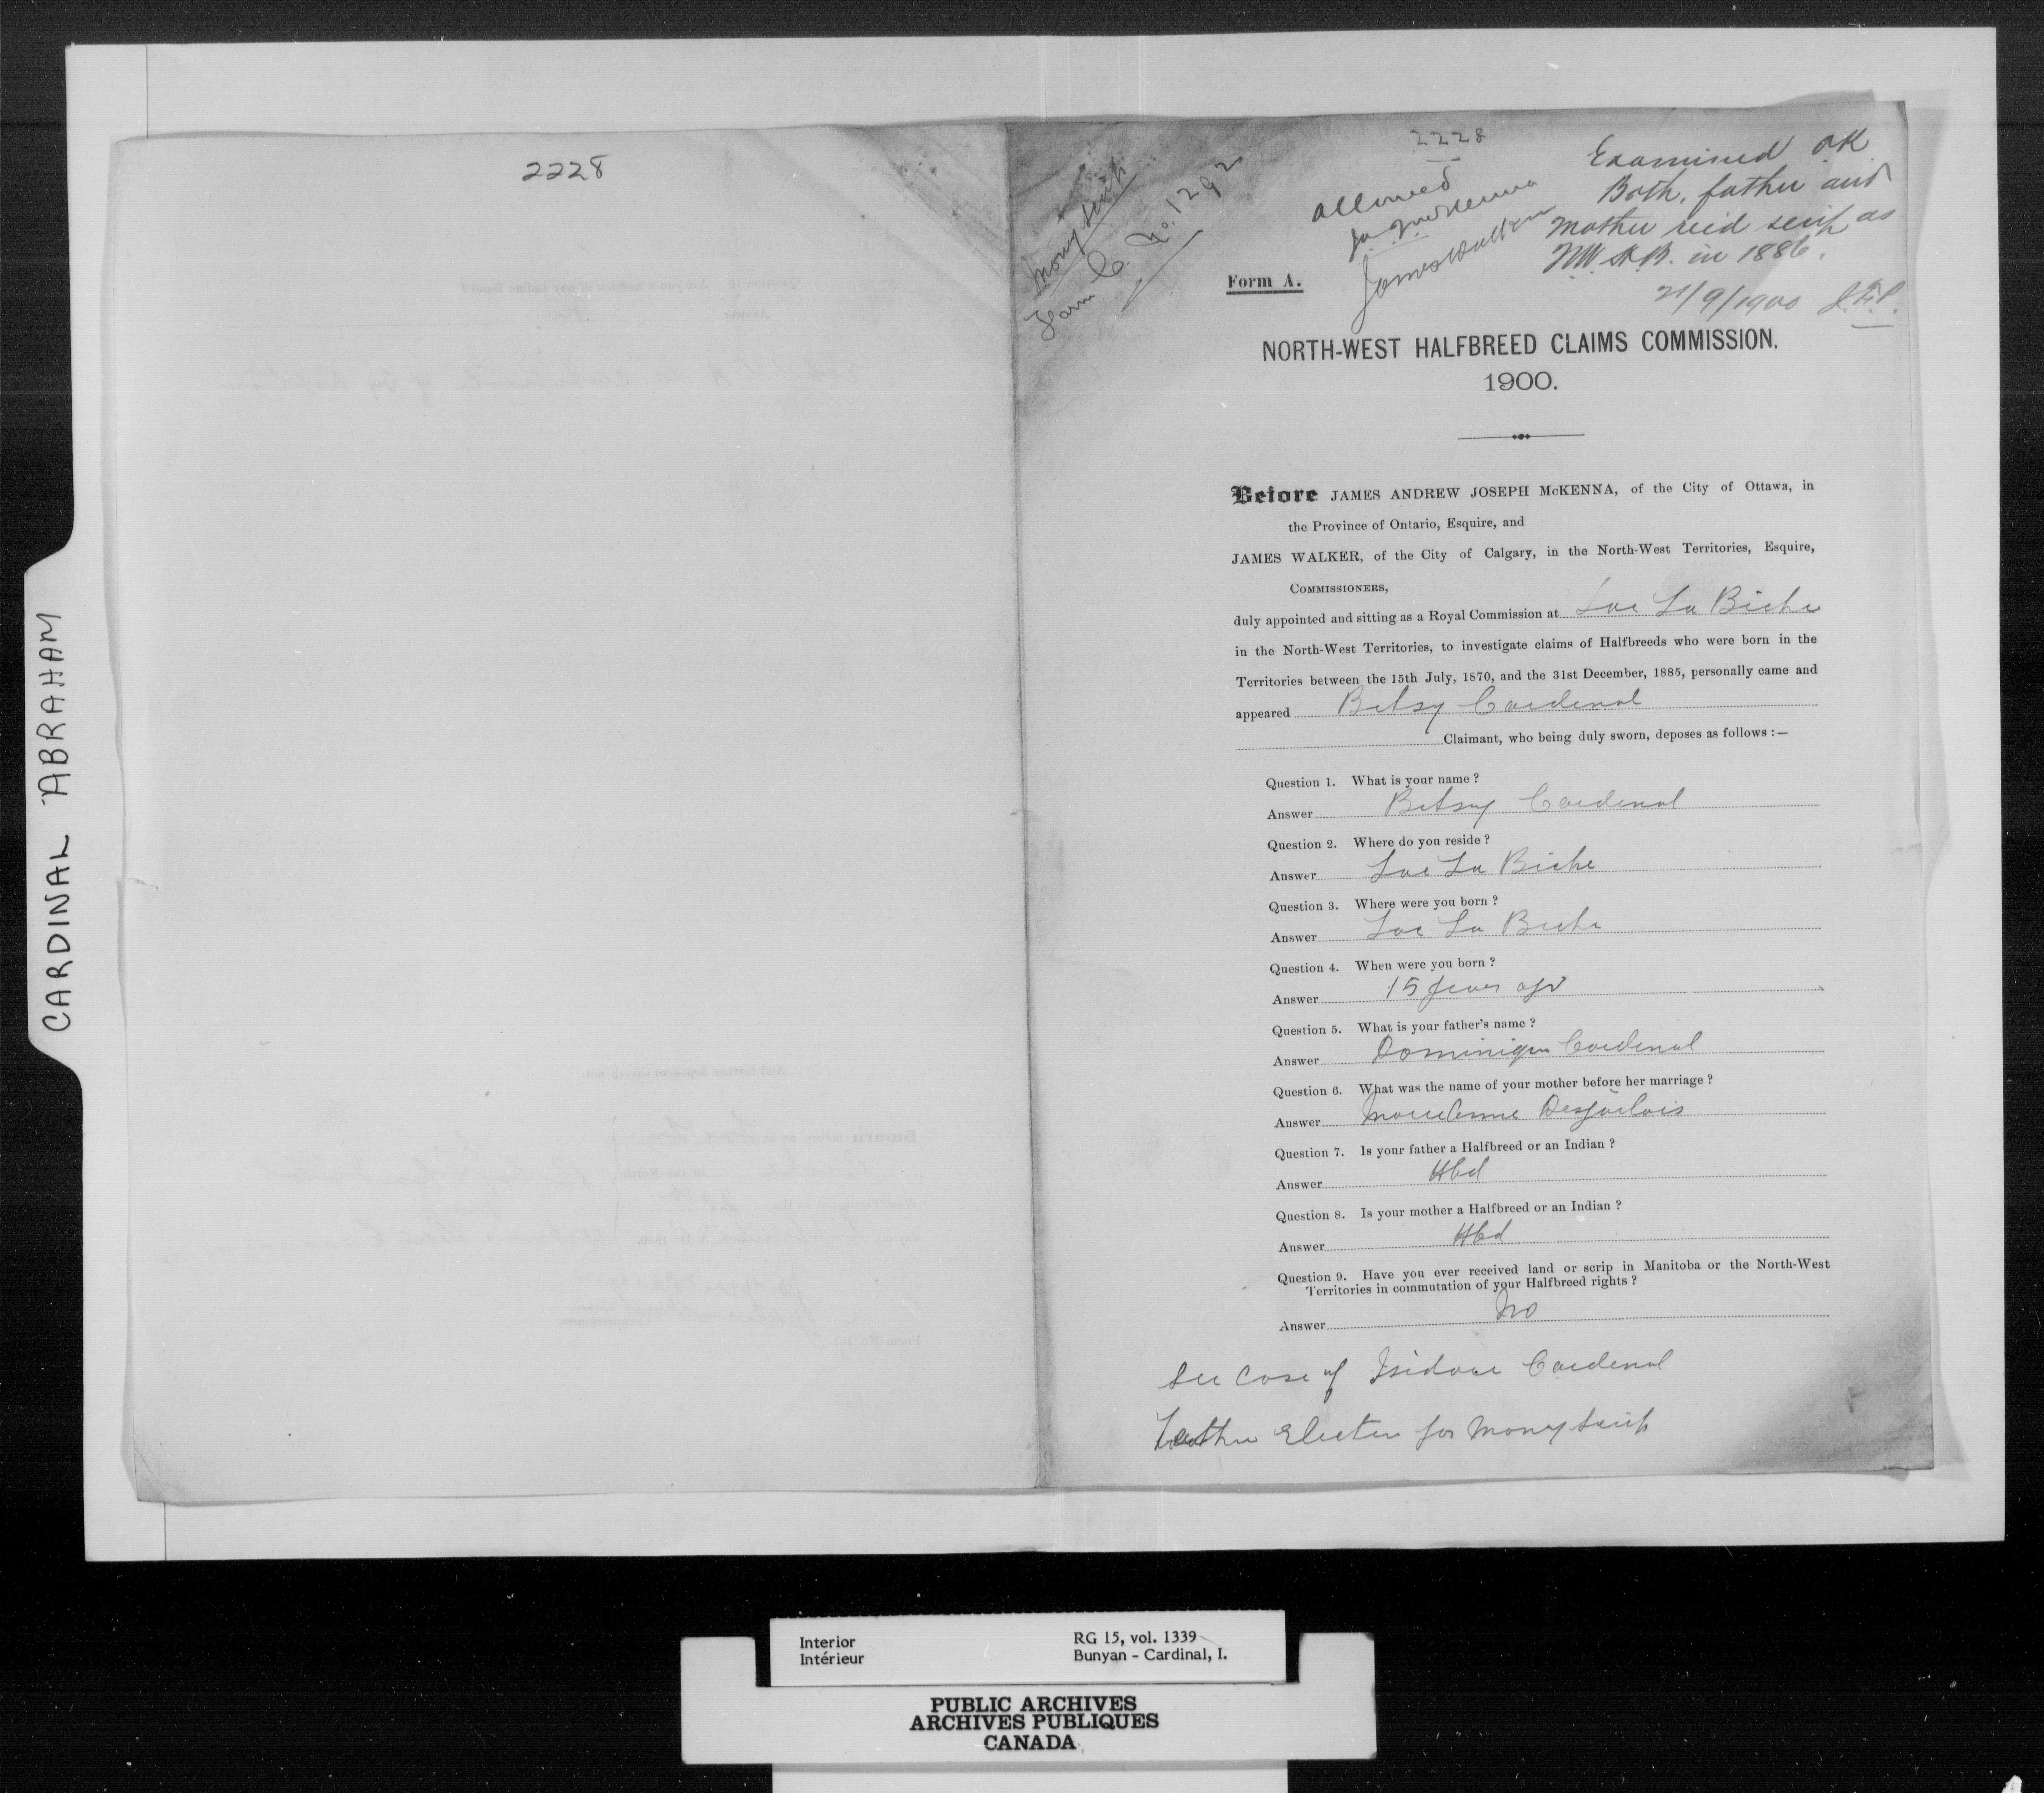 CARDINAL ABRAHAM
2228
2228
Money Scrip
Form C. No. 1292
Allowed
J.A.J. McKenna
James Walker
Examined OK
Both, father and
Mother rec'd scrip as
N.W.H.B. in 1886.
21/9/1900 J.F.P.
Form A.
NORTH-WEST HALFBREED CLAIMS COMMISSION.
1900.
Before JAMES ANDREW JOSEPH McKENNA, of the City of Ottawa, in
the Province of Ontario, Esquire, and
JAMES WALKER, of the City of Calgary, in the North-West Territories, Esquire,
COMMISSIONERS,
duly appointed and sitting as a Royal Commission at Lac La Biche
in the North-West Territories, to investigate claims of Halfbreeds who were born in the
Territories between the 15th July, 1870, and the 31st December, 1885, personally came and
appeared Betsy Cardinal
Claimant, who being duly sworn, deposes as follows :—
Question 1. What is your name ?
Answer Betsy Cardinal
Question 2. Where do you reside ?
Answer Lac La Biche
Question 3. Where were you born ?
Answer Lac La Biche
Question 4. When were you born ?
Answer 15 years ago
Question 5. What is your father's name ?
Answer Dominique Cardinal
Question 6. What was the name of your mother before her marriage ?
Answer Marie Anne Desjarlais
Question 7. Is your father a Halfbreed or an Indian ?
Answer Hbd
Question 8. Is your mother a Halfbreed or an Indian ?
Answer Hbd
Question 9. Have you ever received land or scrip in Manitoba or the North-West
Territories in commutation of your Halfbreed rights ?
Answer No
See Case of Isidore Cardinal
Father Elects for Money Scrip
Interior
Intérieur
RG 15, vol. 1339
Bunyan - Cardinal, I.
PUBLIC ARCHIVES
ARCHIVES PUBLIQUES
CANADA